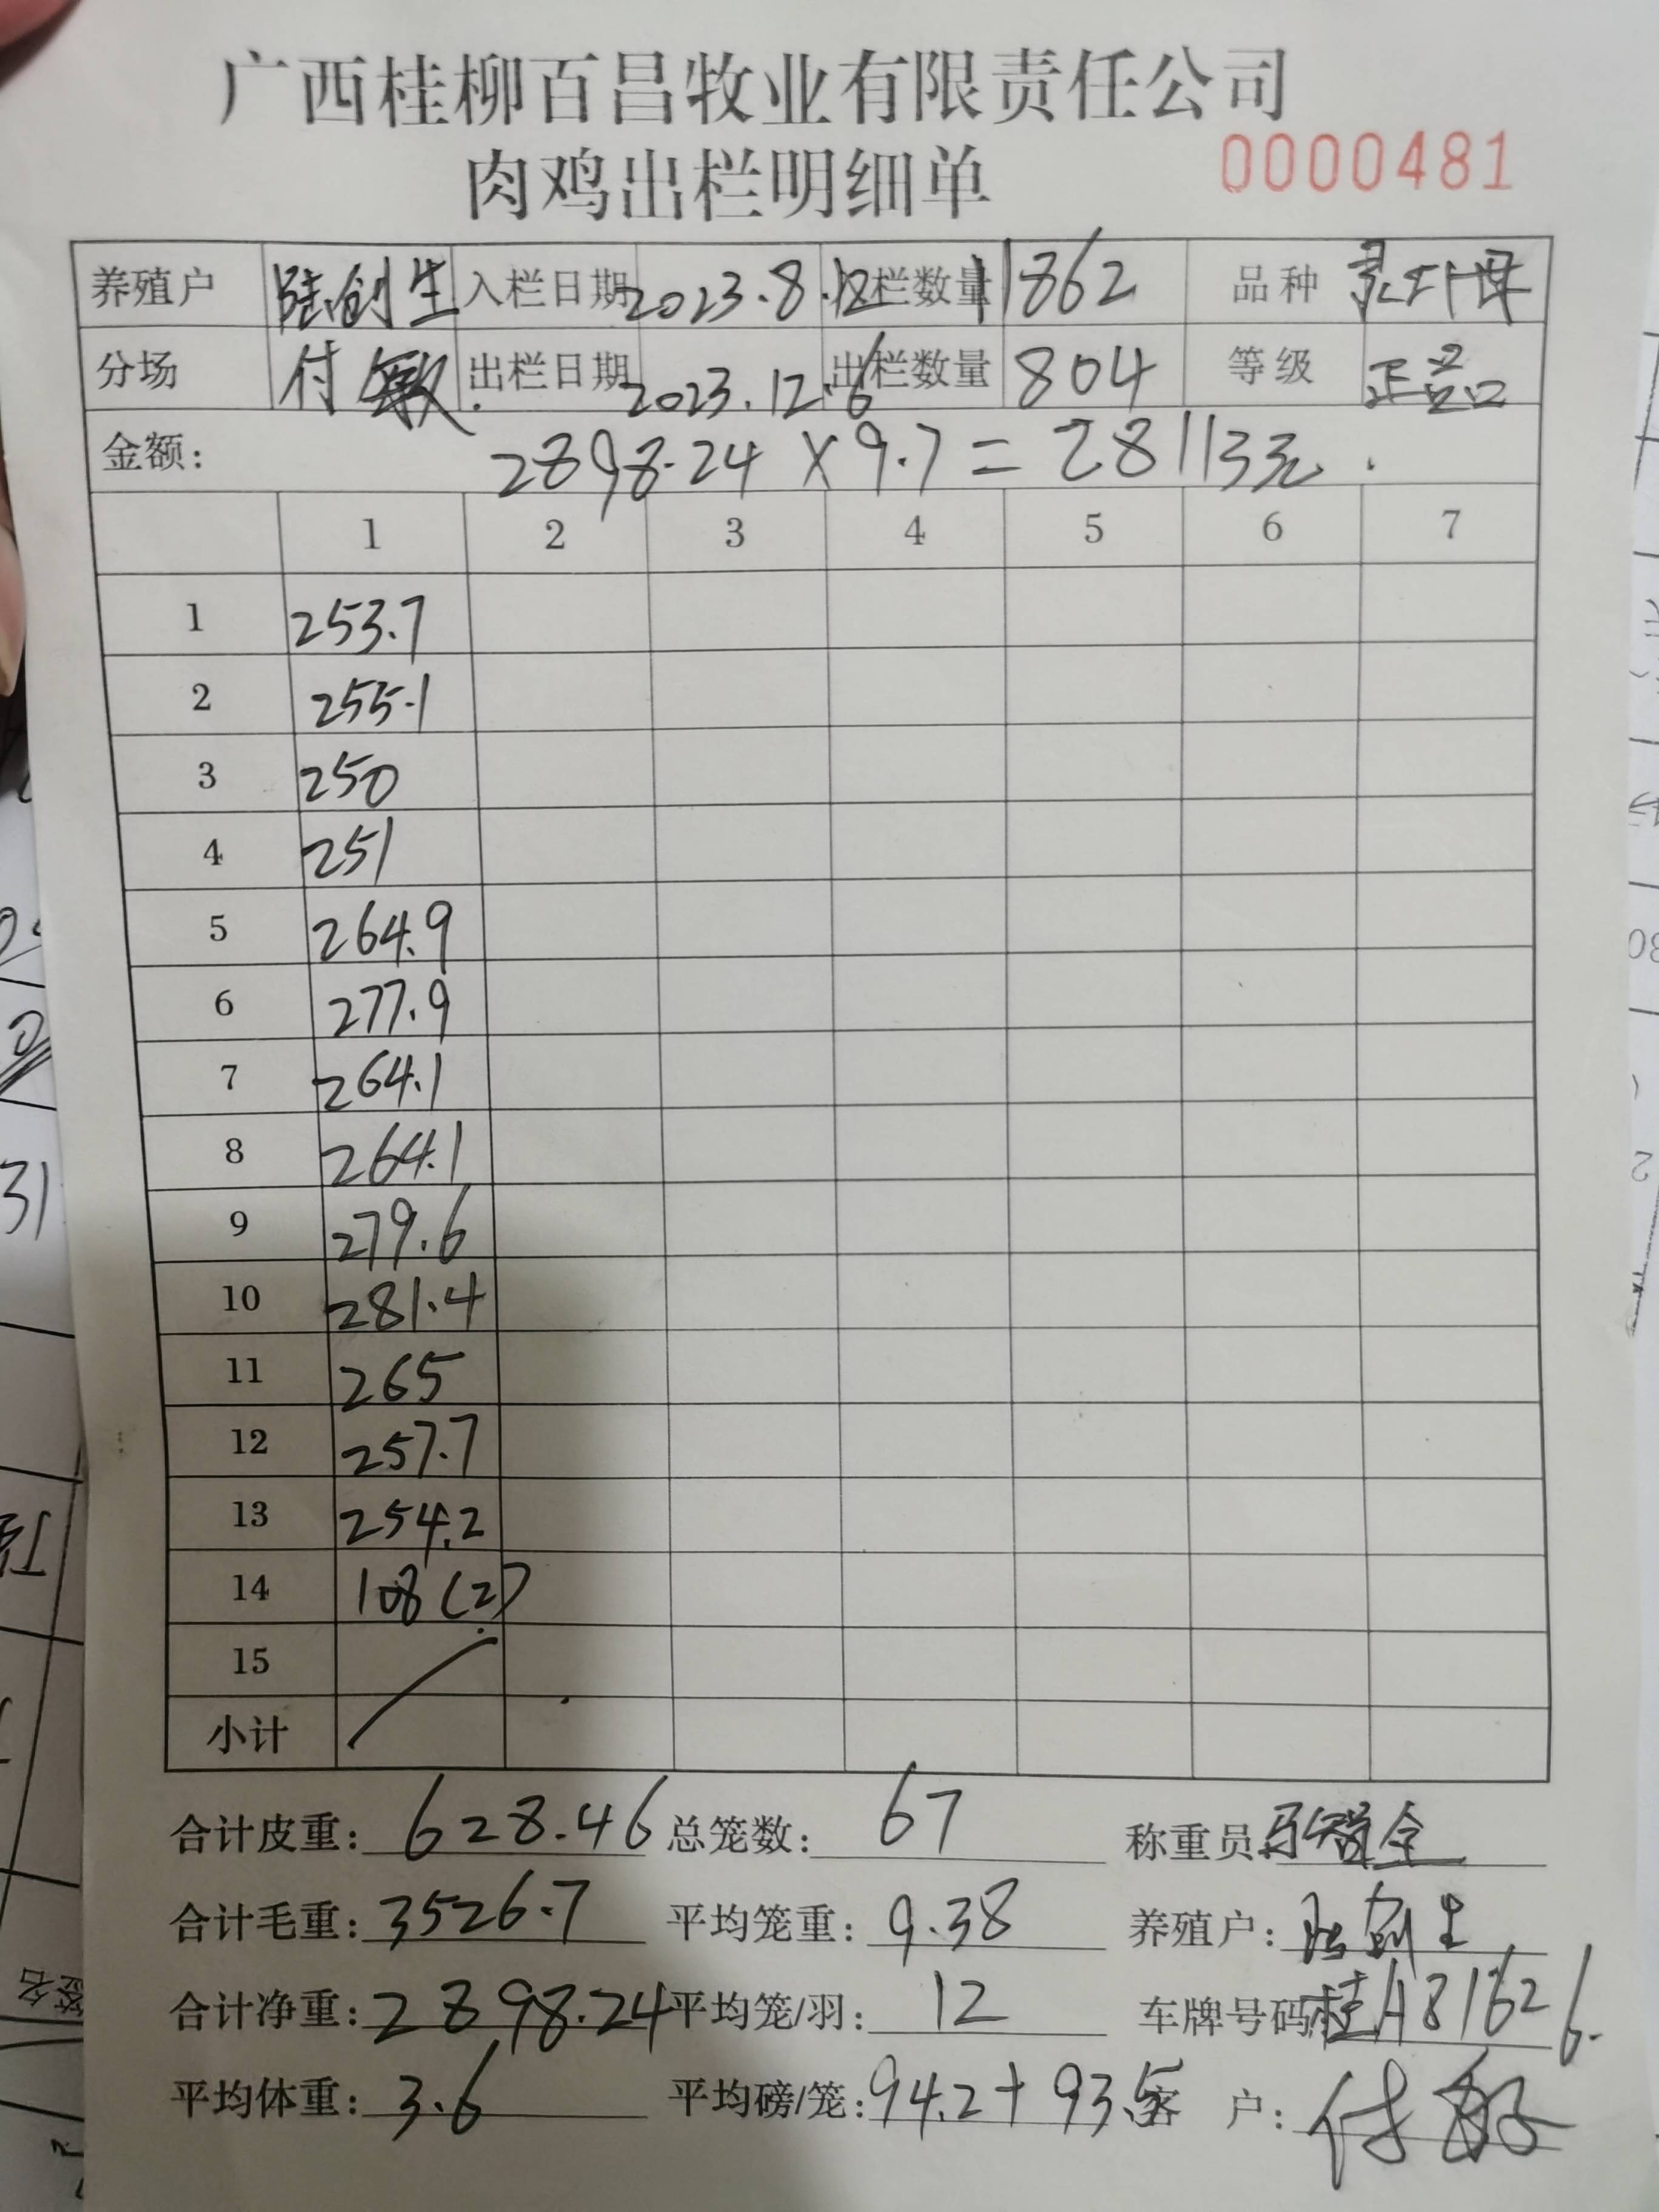 广西桂柳百昌牧业有限责任公司
肉鸡出栏明细单 0000481
养殖户 陆创生 入栏日期 2023.8.12 入栏数量 11862 品种
分场 付敏 出栏日期 2023.12.6 出栏数量 804 等级 正品
金额: 2898.24 × 9.7 = 28113元.
1 2 3 4 5 6 7
1 253.7
2 255.1
3 250
4 251
5 264.9
6 277.9
7 264.1
8 264.1
9 279.6
10 281.4
11 265
12 257.7
13 254.2
14 108(2)
15
小计
合计皮重: 628.46 总笼数: 67 称重员
合计毛重: 3526.7 平均笼重: 9.38 养殖户: 陆创生
合计净重: 2898.24 平均笼/羽: 12 车牌号码 桂A81626.
平均体重: 3.6 平均磅/笼: 94.2+93.5 客 户: 付